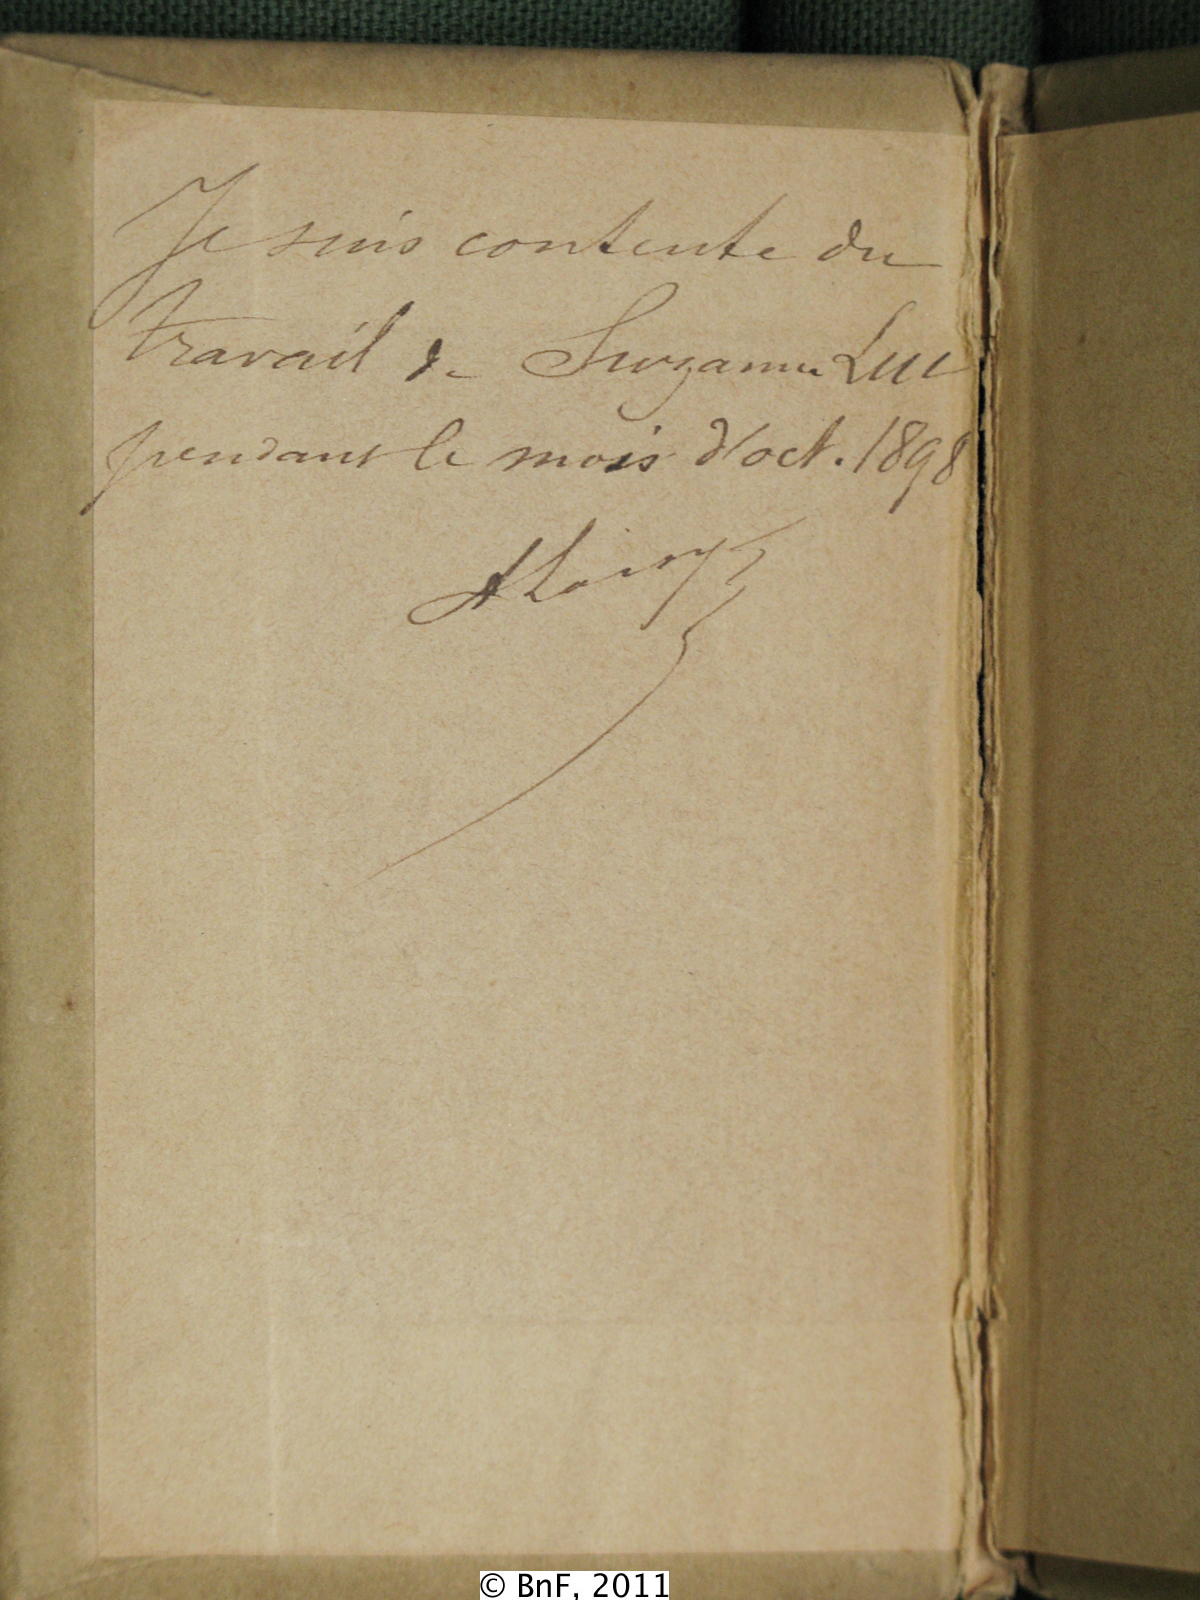 Je suis contente du
travail de Suzanne Luc
pendant le mois d'oct. 1898
© BnF, 2011